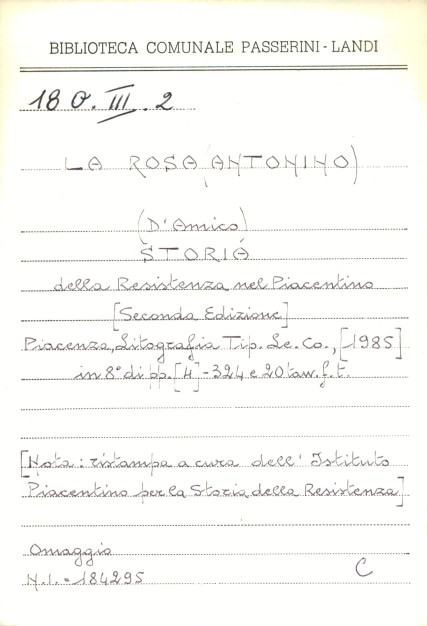 BIBLIOTECA COMUNALE PASSERINI - LANDI
18 O. III. 2
LA ROSA (ANTONINO)
(D'Amico)
STORIA
della Resistenza nel Piacentino
[Seconda Edizione]
Piacenza, Litografia Tip. Le. Co., [1985]
in 8° di pp. [4] - 324 e 20 tav. f. t.
[Nota: ristampa a cura dell' Istituto
Piacentino per la Storia della Resistenza]
Omaggio
N.I. = 184295
C